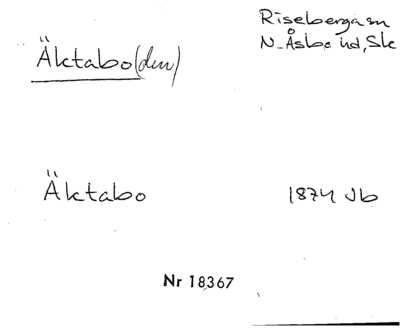 Äktabo(den)
Riseberga sn
N. Åsbo hd, Sk
Äktabo
1874 Jb
Nr 18367